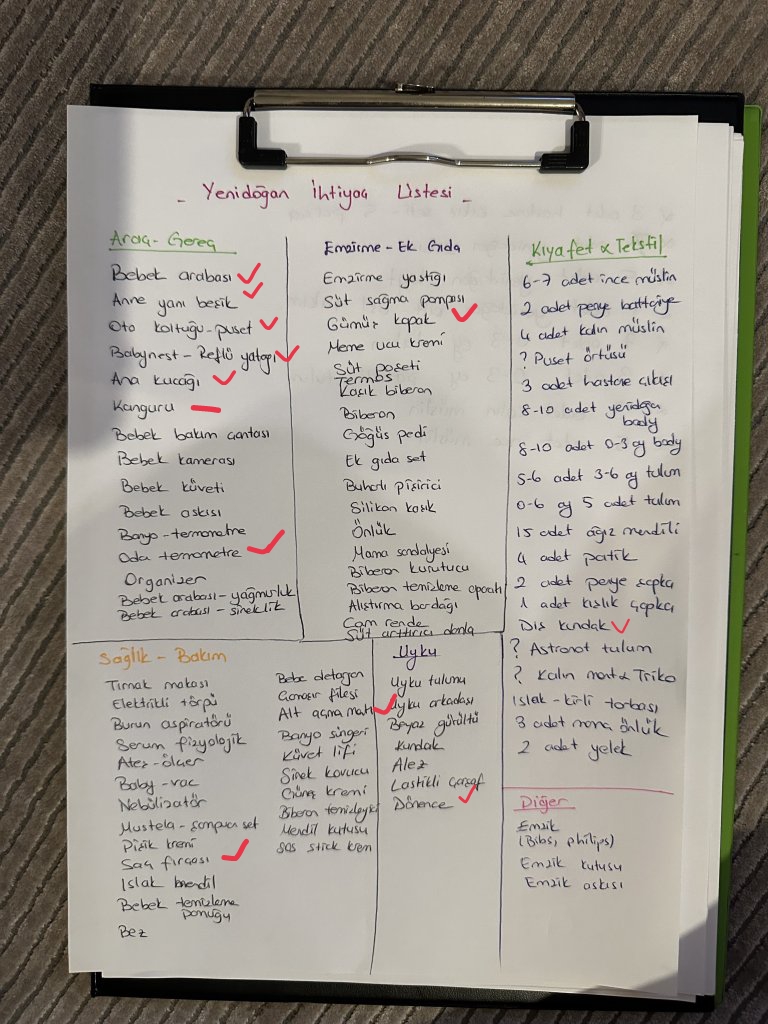 - Yenidoğan İhtiyaç Listesi -
Araç - Gereç
Bebek arabası
Anne yanı beşik
Oto koltuğu - puset
Babynest - Reflü yatağı
Ana kucağı
Kanguru
Bebek bakım çantası
Bebek kamerası
Bebek küveti
Bebek askısı
Banyo - termometre
Oda termometre
Organizer
Bebek arabası - yağmurluk
Bebek arabası - sineklik
Emzirme - Ek Gıda
Emzirme yastığı
Süt sağma pompası
Gümüş kapak
Meme ucu kremi
Süt poşeti
Termos
Kaşık biberon
Biberon
Göğüs pedi
Ek gıda set
Buharlı pişirici
Silikon kaşık
Önlük
Mama sandalyesi
Biberon kurutucu
Biberon temizleme aparatı
Alıştırma bardağı
Cam rende
Süt arttırıcı
Kıyafet & Tekstil
6-7 adet ince müslin
2 adet penye battaniye
4 adet kalın müslin
? Puset örtüsü
3 adet hastane çıkışı
8-10 adet yenidoğan
body
8-10 adet 0-3 ay body
5-6 adet 3-6 ay tulum
0-6 ay 5 adet tulum
15 adet ağız mendili
4 adet patik
2 adet penye şapka
1 adet kışlık şapka
Dış kundak
? Astronot tulum
? Kalın mont & Triko
Islak - kirli torbası
3 adet mama önlük
2 adet yelek
Sağlık - Bakım
Tırnak makası
Elektrikli törpü
Burun aspiratörü
Serum fizyolojik
Ateş - ölçer
Baby - vac
Nebülizatör
Mustela - şampuan set
Pişik kremi
Saç fırçası
Islak mendil
Bebek temizleme
pamuğu
Bez
Bebe detarjan
Çamaşır filesi
Alt açma matı
Banyo süngeri
Küvet lifi
Sinek kovucu
Güneş kremi
Biberon temizleyici
Mendil kutusu
SOS stick krem
Uyku
Uyku tulumu
Uyku arkadaşı
Beyaz gürültü
Kundak
Alez
Lastikli çarşaf
Dönence
Diğer
Emzik
(Bibs, philips)
Emzik kutusu
Emzik askısı